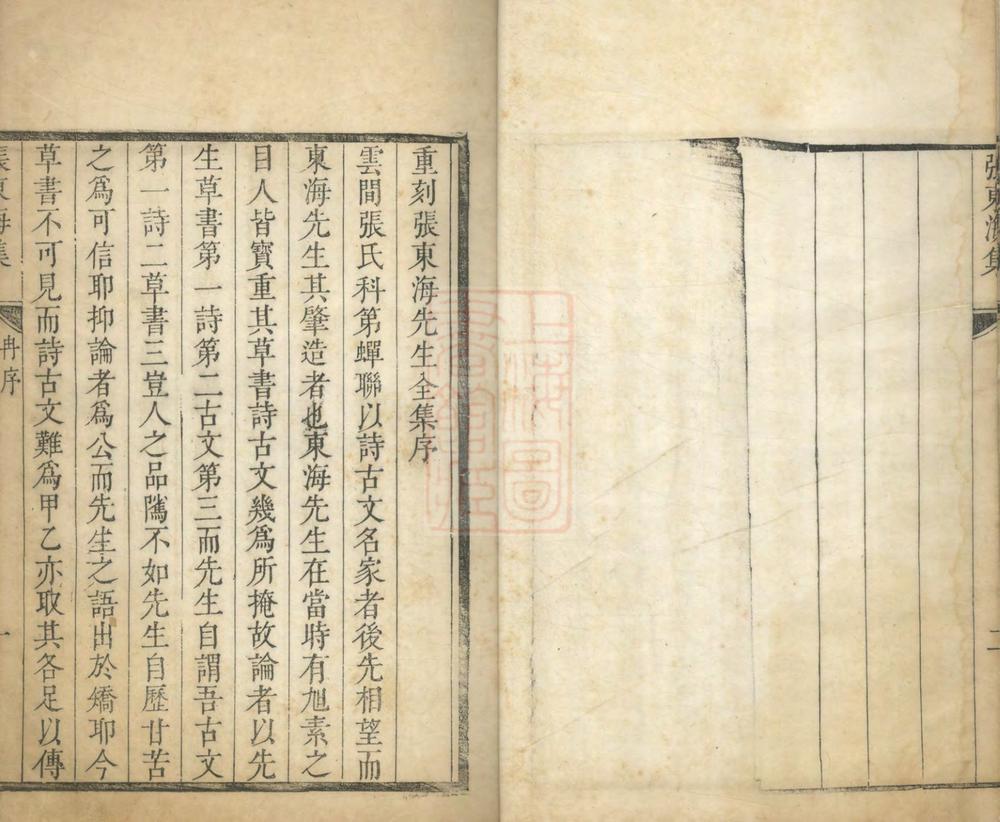 張東海集
二
重刻張東海先生全集序
雲間張氏科第蟬聯以詩古文名家者後先相望而
東海先生其肇造者也東海先生在當時有旭素之
目人皆寶重其草書詩古文幾為所掩故論者以先
生草書第一詩第二古文第三而先生自謂吾古文
第一詩二草書三豈人之品隲不如先生自歷甘苦
之為可信耶抑論者為公而先生之語出於矯耶今
草書不可見而詩古文難為甲乙亦取其各足以傳
張東海集
冉序
一